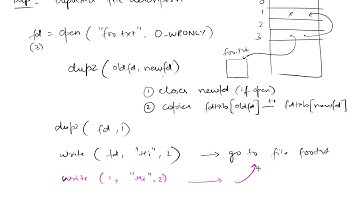 Dup: Duplicate file descriptors
0
1
2
3
fd = open ("foo.txt", O_WRONLY)
(3)
foo.txt
dup2 (oldfd, newfd)
① closes newfd (if open)
② copies fdtab[oldfd] to fdtab[newfd]
dup2 ( fd, 1)
write ( fd, "Hi", 2) → go to file foo.txt
write ( 1, "Hi", 2)